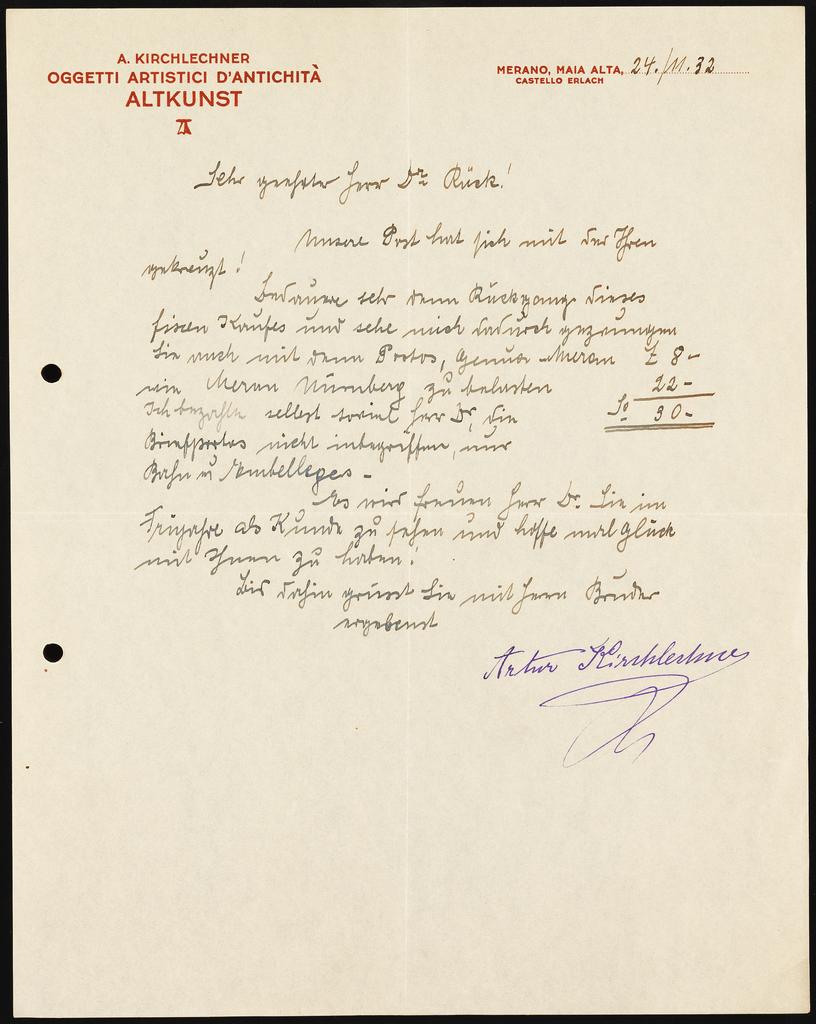 A. KIRCHLECHNER
OGGETTI ARTISTICI D'ANTICHITÀ
ALTKUNST
MERANO, MAIA ALTA, 24./11.32
CASTELLO ERLACH
Sehr geehrter Herr Dr. Rück!
Unsere Post hat sich mit der Ihren
gekreuzt!
Bedauere sehr denn Rückgang dieses
fixen Kaufes und sehe mich dadurch gezwungen
Sie auch mit denn Portos, Genua-Meran £ 8-
wie Meran Nürnberg zu belasten 22-
Ich bezahlte selbst soviel Herr Dr, die 30-
Briefportos nicht inbegriffen, nur
Bahn u
Es wird freuen Herr Dr. Sie im
Frujahre als Kunde zu sehen und hoffe mal Glück
mit Ihnen zu haben!
Bis dahin grüsst Sie mit Herrn Bruder
ergebenst
Artur Kirchlechner